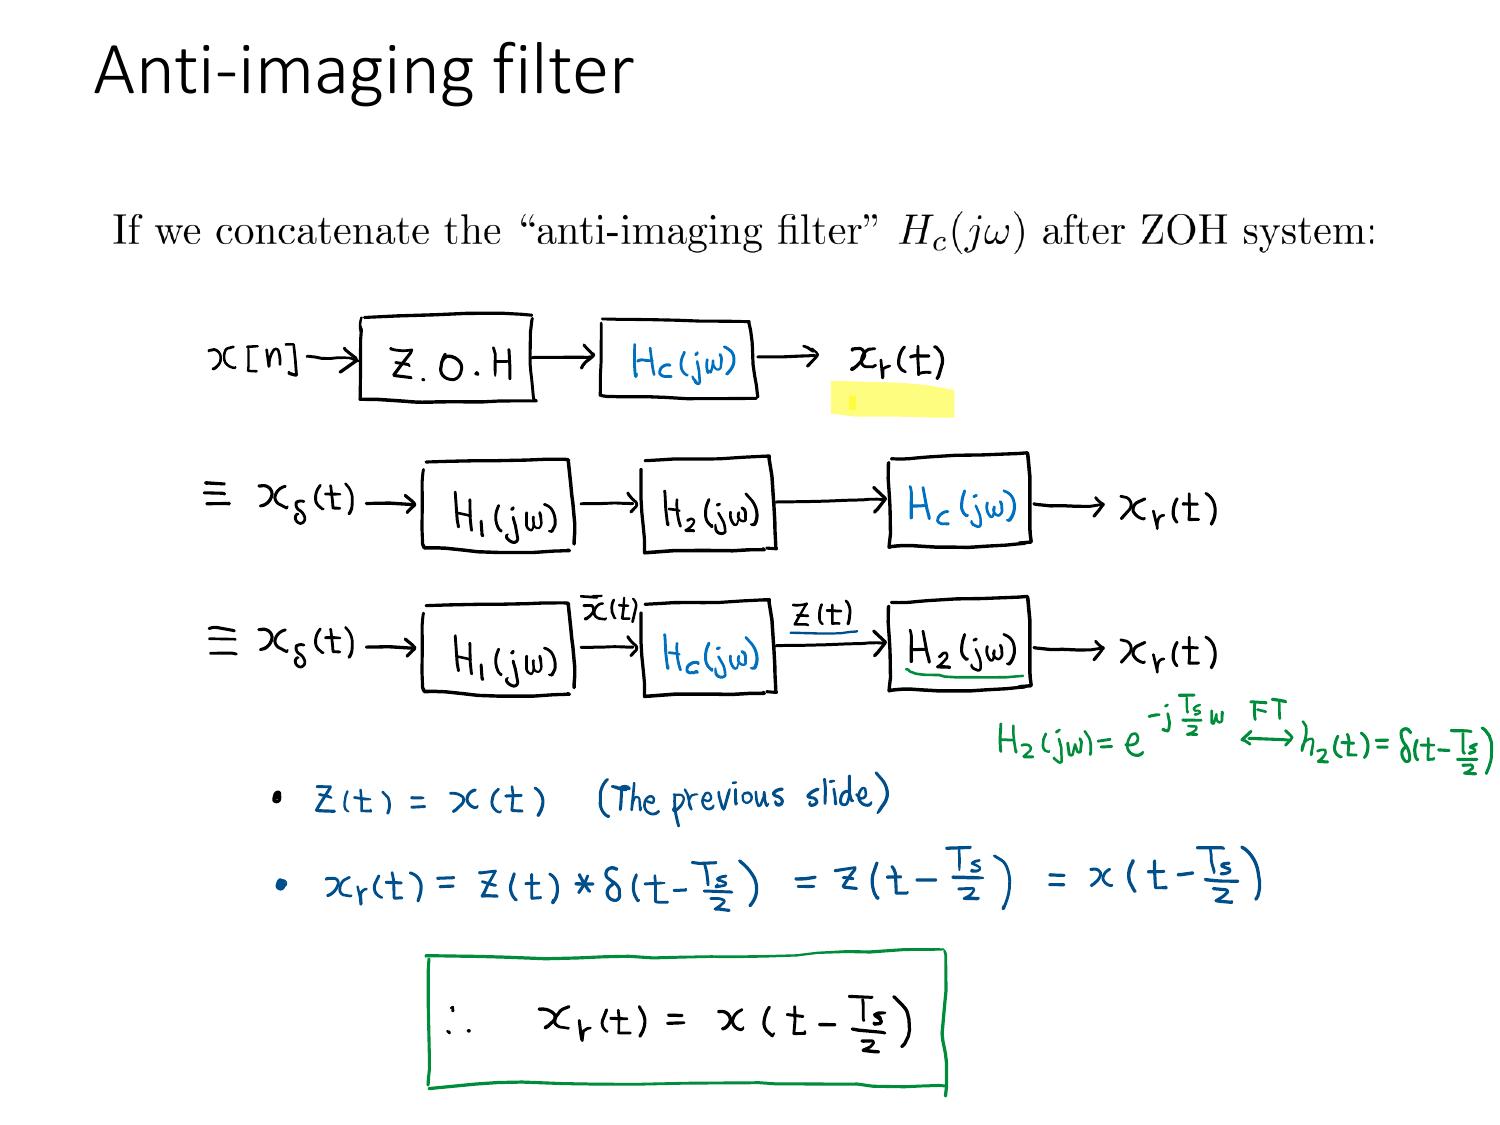 Anti-imaging filter
If we concatenate the “anti-imaging filter” H_c(jω) after ZOH system:
x[n] → Z.O.H → H_c(jω) → x_r(t)
≡ x_δ(t) → H_1(jω) → H_2(jω) → H_c(jω) → x_r(t)
≡ x_δ(t) → H_1(jω) x̄(t) → H_c(jω) z(t) → H_2(jω) → x_r(t)
H_2(jω) = e^{-j T_s/2 ω} ↔ FT h_2(t) = δ(t - T_s/2)
• z(t) = x(t) (The previous slide)
• x_r(t) = z(t) * δ(t - T_s/2) = z(t - T_s/2) = x(t - T_s/2)
∴ x_r(t) = x(t - T_s/2)